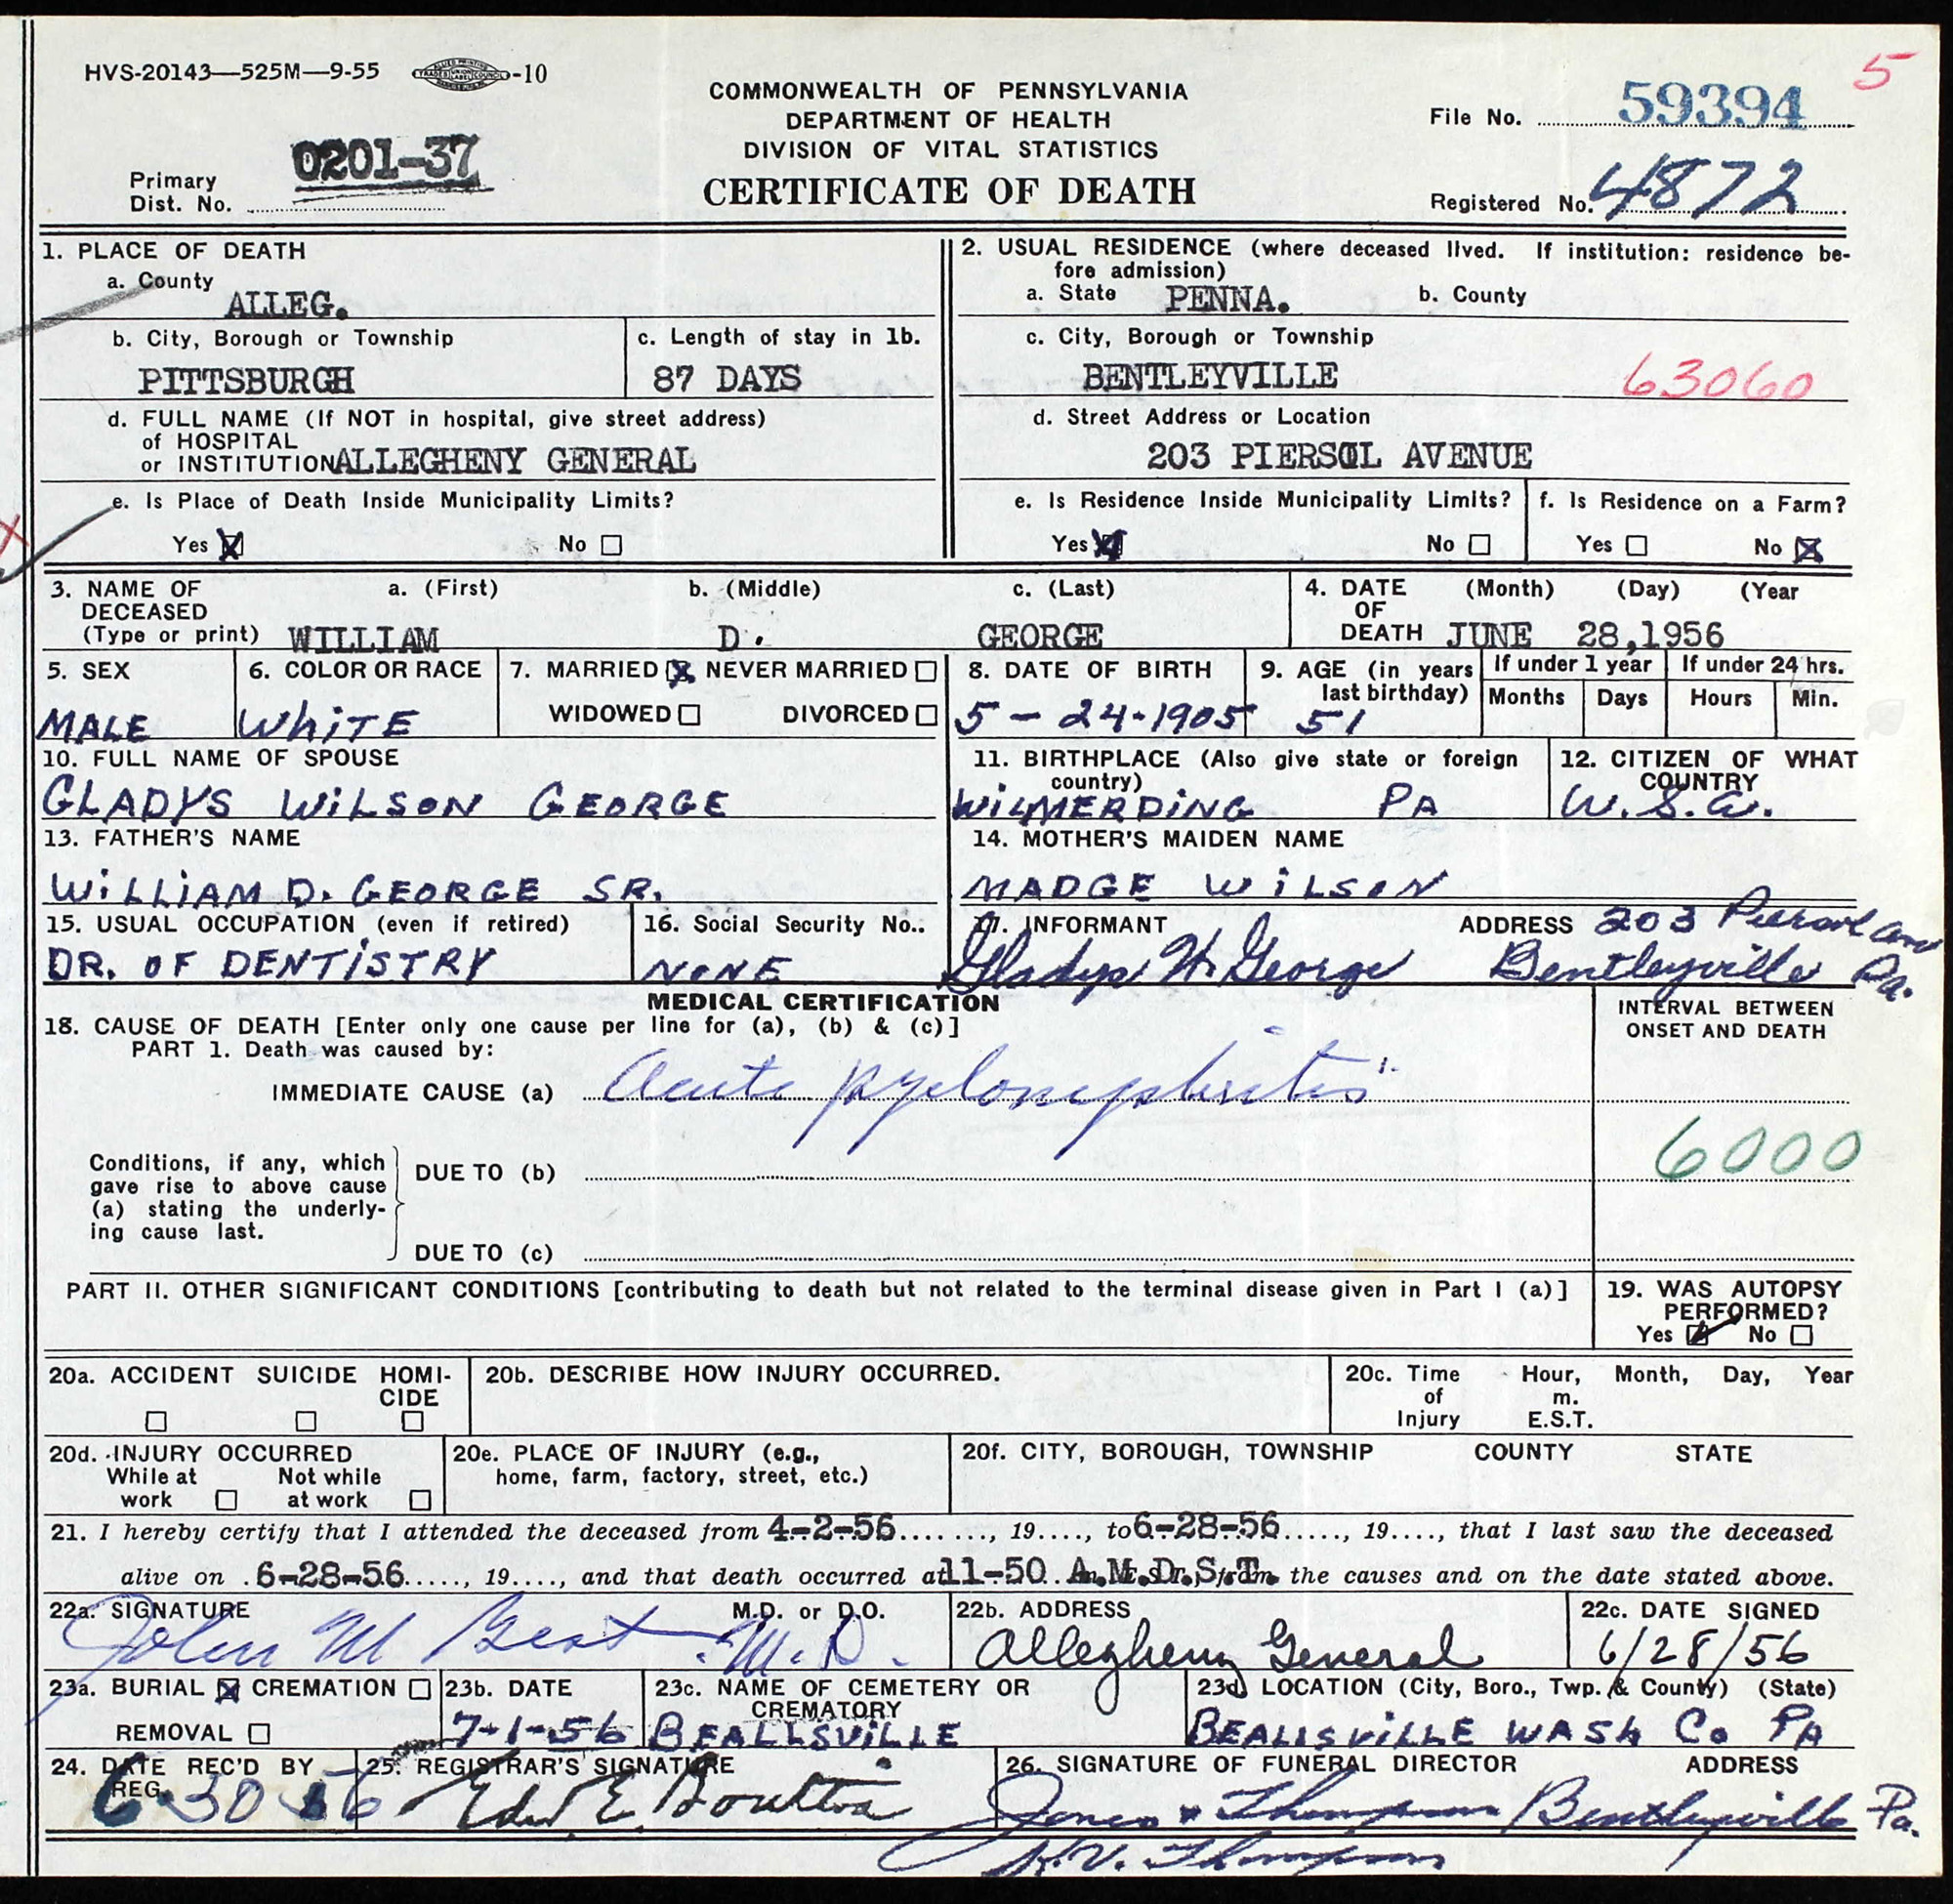 HVS-20143—525M—9-55 -10
5
COMMONWEALTH OF PENNSYLVANIA
DEPARTMENT OF HEALTH
DIVISION OF VITAL STATISTICS
CERTIFICATE OF DEATH
File No. 59394
Primary
Dist. No. 0201-37
Registered No. 4872
1. PLACE OF DEATH
a. County
ALLEG.
2. USUAL RESIDENCE (where deceased lived. If institution: residence be-
fore admission)
a. State PENNA. b. County
b. City, Borough or Township
PITTSBURGH
c. Length of stay in 1b.
87 DAYS
c. City, Borough or Township
BENTLEYVILLE 63060
d. FULL NAME (If NOT in hospital, give street address)
of HOSPITAL
or INSTITUTION ALLEGHENY GENERAL
d. Street Address or Location
203 PIERSOL AVENUE
e. Is Place of Death Inside Municipality Limits?
Yes X No
e. Is Residence Inside Municipality Limits?
Yes X No
f. Is Residence on a Farm?
Yes No X
3. NAME OF a. (First) b. (Middle) c. (Last)
DECEASED
(Type or print) WILLIAM D. GEORGE
4. DATE (Month) (Day) (Year
OF
DEATH JUNE 28,1956
5. SEX
MALE
6. COLOR OR RACE
WHiTE
7. MARRIED X NEVER MARRIED
WIDOWED DIVORCED
8. DATE OF BIRTH
5-24-1905
9. AGE (in years
last birthday)
51
If under 1 year
Months Days
If under 24 hrs.
Hours Min.
10. FULL NAME OF SPOUSE
GLADYS WILSON GEORGE
11. BIRTHPLACE (Also give state or foreign
country)
WILMERDING PA
12. CITIZEN OF WHAT
COUNTRY
U.S.A.
13. FATHER'S NAME
WILLIAM D. GEORGE SR.
14. MOTHER'S MAIDEN NAME
MADGE WILSON
15. USUAL OCCUPATION (even if retired)
DR. OF DENTISTRY
16. Social Security No..
NONE
17. INFORMANT
Gladys W. George
ADDRESS 203 Piersol Ave
Bentleyville Pa.
MEDICAL CERTIFICATION
18. CAUSE OF DEATH [Enter only one cause per line for (a), (b) & (c)]
PART 1. Death was caused by:
IMMEDIATE CAUSE (a) Acute pyelonephritis
INTERVAL BETWEEN
ONSET AND DEATH
6000
Conditions, if any, which
gave rise to above cause
(a) stating the underly-
ing cause last.
DUE TO (b)
DUE TO (c)
PART II. OTHER SIGNIFICANT CONDITIONS [contributing to death but not related to the terminal disease given in Part I (a)]
19. WAS AUTOPSY
PERFORMED?
Yes No
20a. ACCIDENT SUICIDE HOMI-
CIDE
20b. DESCRIBE HOW INJURY OCCURRED.
20c. Time Hour, Month, Day, Year
of m.
Injury E.S.T.
20d. INJURY OCCURRED
While at Not while
work at work
20e. PLACE OF INJURY (e.g.,
home, farm, factory, street, etc.)
20f. CITY, BOROUGH, TOWNSHIP COUNTY STATE
21. I hereby certify that I attended the deceased from 4-2-56......, 19...., to 6-28-56....., 19...., that I last saw the deceased
alive on .6-28-56....., 19...., and that death occurred at 11-50 A.M.D.S.T. the causes and on the date stated above.
22a. SIGNATURE M.D. or D.O.
John M Best M.D.
22b. ADDRESS
Allegheny General
22c. DATE SIGNED
6/28/56
23a. BURIAL X CREMATION
REMOVAL
23b. DATE
7-1-56
23c. NAME OF CEMETERY OR
CREMATORY
BEALLSVILLE
23d. LOCATION (City, Boro., Twp. & County) (State)
BEALLSVILLE WASH Co PA
24. DATE REC'D BY
REG.
6-30-56
25. REGISTRAR'S SIGNATURE
26. SIGNATURE OF FUNERAL DIRECTOR ADDRESS
Thompson Bentleyville Pa.
H.V. Thompson